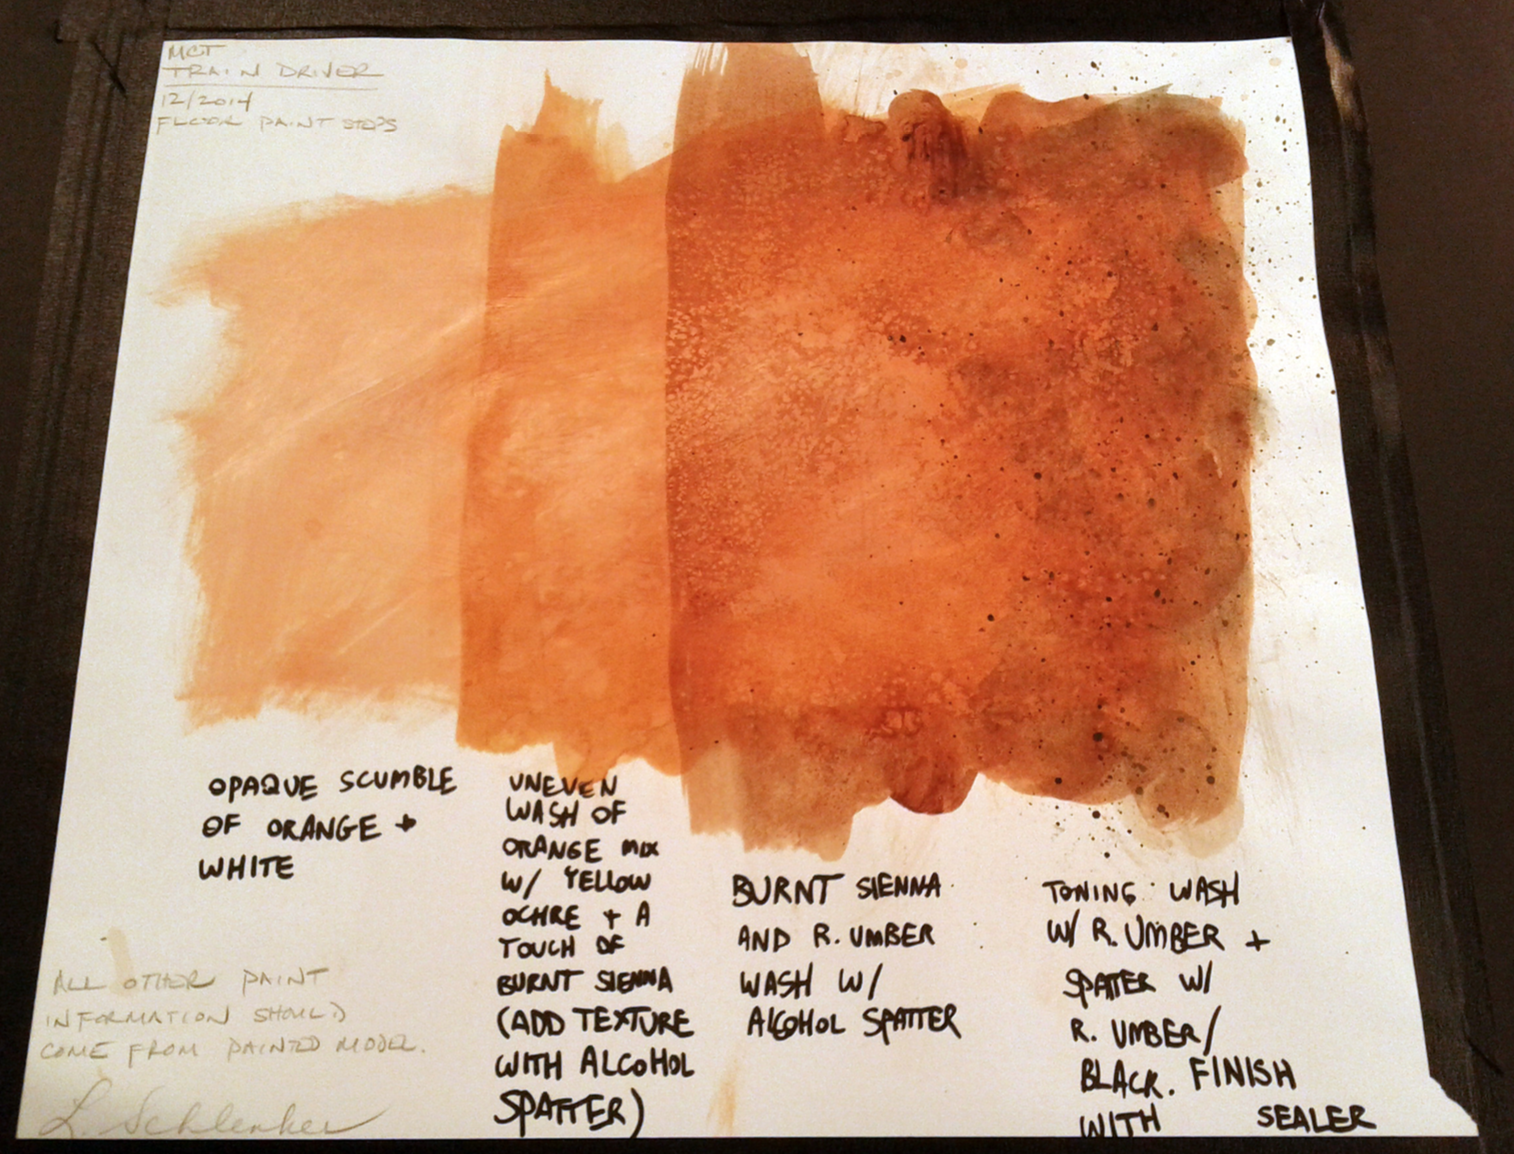 MCT
TRAIN DRIVER
12/2014
FLOOR PAINT STEPS
OPAQUE SCUMBLE
OF ORANGE +
WHITE
UNEVEN
WASH OF
ORANGE MIX
W/ YELLOW
OCHRE + A
TOUCH OF
BURNT SIENNA
(ADD TEXTURE
WITH ALCOHOL
SPATTER)
BURNT SIENNA
AND R. UMBER
WASH W/
ALCOHOL SPATTER
TONING WASH
W/ R. UMBER +
SPATTER W/
R. UMBER/
BLACK. FINISH
WITH SEALER
ALL OTHER PAINT
INFORMATION SHOULD
COME FROM PAINTED MODEL.
L. Schlenker